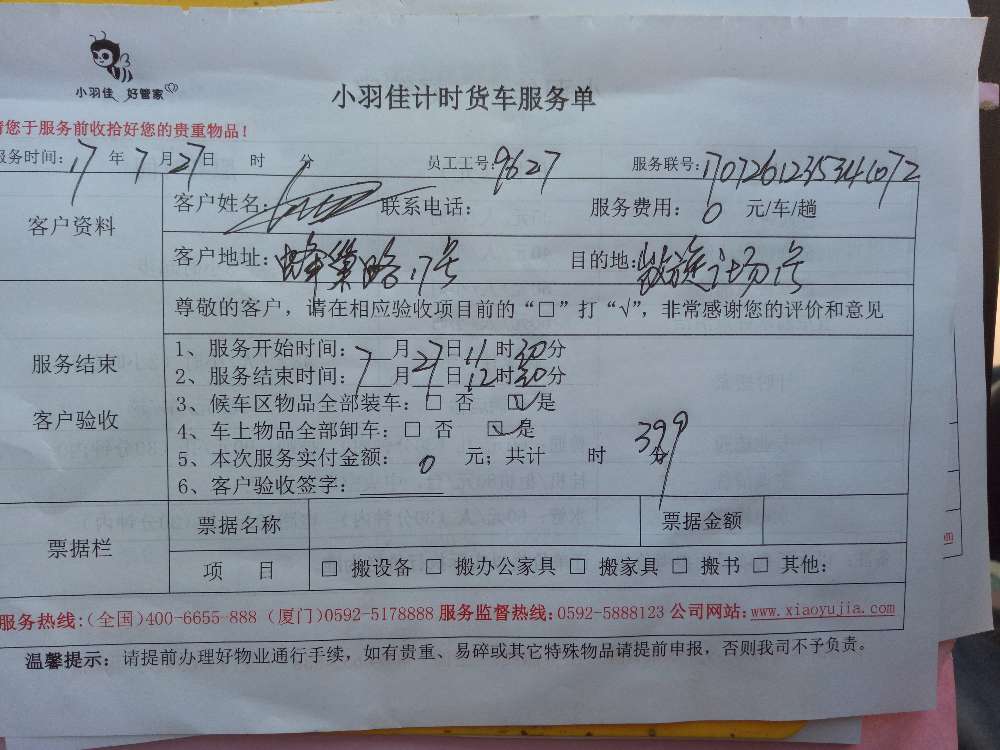 小羽佳 好管家
小羽佳计时货车服务单
请您于服务前收拾好您的贵重物品！
服务时间：17年7月27日 时 分 员工工号：9627 服务联号：
客户资料
客户姓名： 联系电话： 服务费用：0 元/车/趟
客户地址：蜂巢路17号 目的地：
尊敬的客户，请在相应验收项目前的“□”打“√”，非常感谢您的评价和意见
服务结束
客户验收
1、服务开始时间：7月27日11时30分
2、服务结束时间：7月27日12时30分
3、候车区物品全部装车：□ 否 ☑是
4、车上物品全部卸车：□ 否 ☑是
5、本次服务实付金额：0 元；共计 时 399 分
6、客户验收签字：
票据栏
票据名称 票据金额
项 目 □ 搬设备 □ 搬办公家具 □ 搬家具 □ 搬书 □ 其他：
服务热线：（全国）400-6655-888（厦门）0592-5178888 服务监督热线：0592-5888123 公司网站：www.xiaoyujia.com
温馨提示：请提前办理好物业通行手续，如有贵重、易碎或其它特殊物品请提前申报，否则我司不予负责。